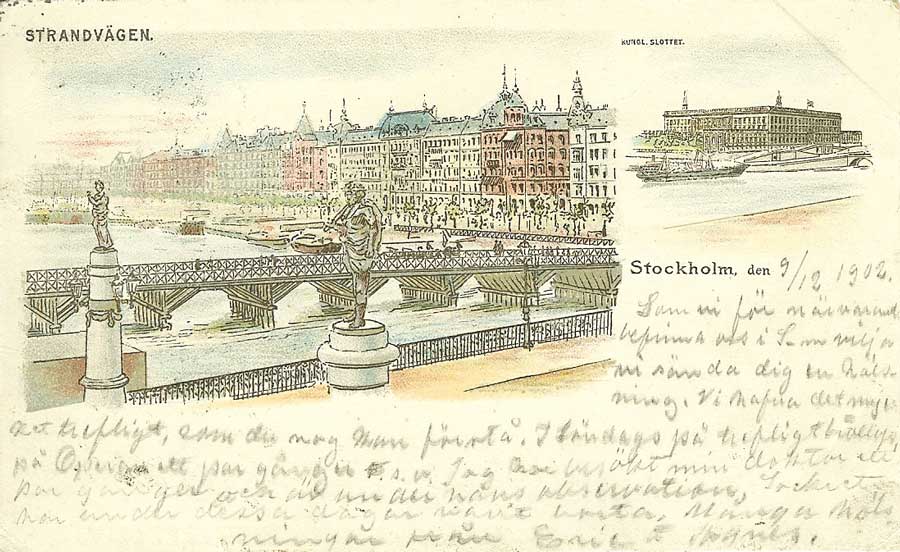 STRANDVÄGEN.
KUNGL. SLOTTET.
Stockholm, den 9/12 1902.
Som vi för närvarande
befinna oss i S-m vilja
vi sända dig en häls-
ning. Vi hafva det myc-
ket trefligt, som du nog kan förstå. I lördags på trefligt bröllop,
på Operan ett par gånger o.s.v. Jag har besökt min doktor ett
par gånger och är under hans observation,
har under dessa dagar varit borta. Många häls
ningar från Eric & Agnes.